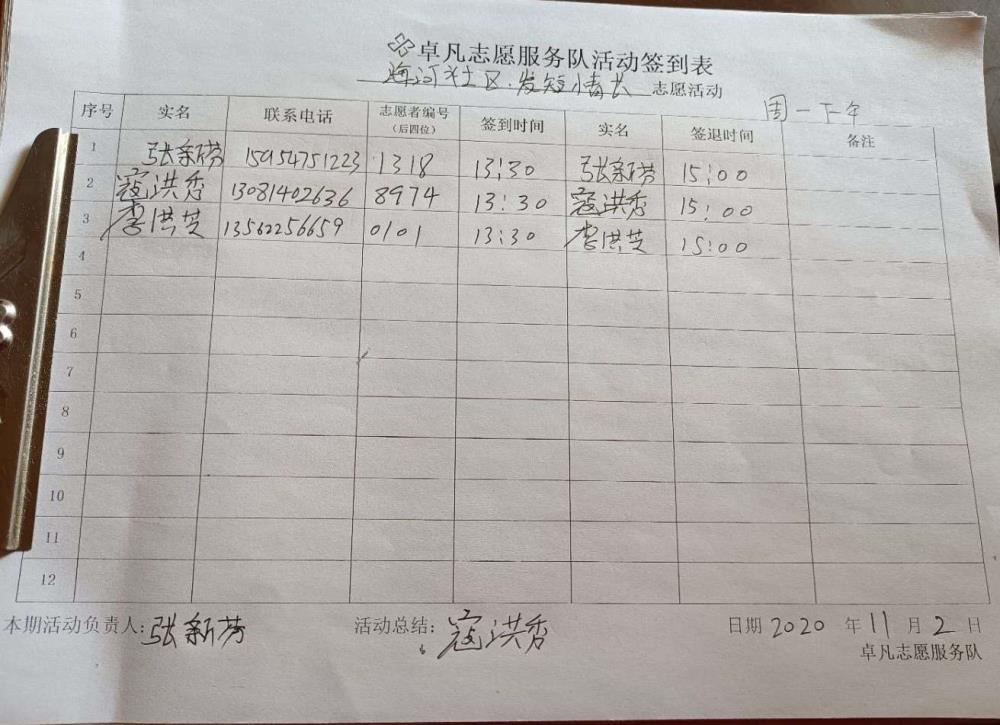 卓凡志愿服务队活动签到表
海河社区·发短情长 志愿活动
周一下午
序号 实名 联系电话 志愿者编号(后四位) 签到时间 实名 签退时间 备注
1 张新芬 15954751223 1318 13:30 张新芬 15:00
2 寇洪秀 13081402636 8974 13:30 寇洪秀 15:00
3 李洪芝 13562256659 0101 13:30 李洪芝 15:00
4
5
6
7
8
9
10
11
12
本期活动负责人:张新芬 活动总结:寇洪秀 日期 2020 年 11 月 2 日
卓凡志愿服务队